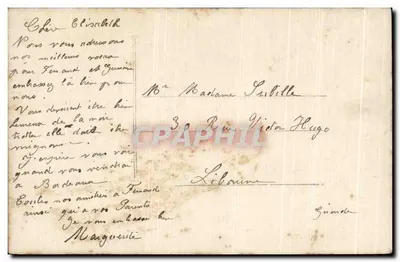 Chère Elisabeth
Nous vous adressons
nos meilleurs vœux
pour Fernand et
embrassez le bien pour
nous.
Vous devriez être bien
de la
elle doit être
mignonne.
J'espère vous voir
quand vous viendrai
a Bordeaux
Toutes nos amitiés a Fernand
ainsi qu'a vos Parents
Je vous embrasse bien
Marguerite
Mme Madame Subille
30 Rue Victor Hugo
Libourne
Gironde
CPARAMA